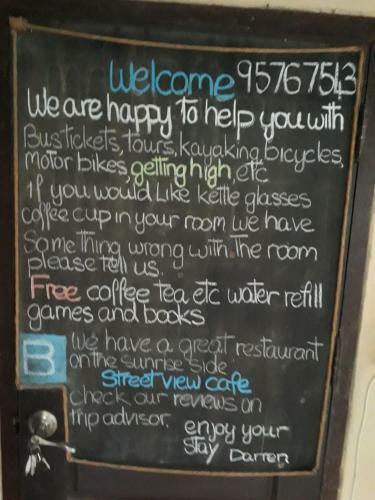 Welcome 95767513
We are happy to help you with
Bus tickets, tours, kayaking, bicycles,
motor bikes, getting high, etc
if you would Like kettle glasses
coffee cup in your room we have
Some thing wrong with the room
please tell us.
Free coffee tea etc water refill
games and books
B We have a great restaurant
on the sunrise side
Street view cafe
check our reviews on
trip advisor.
enjoy your
stay Darren